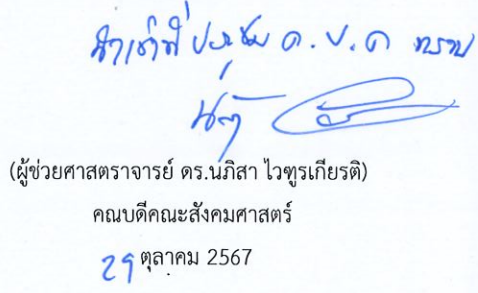 นำเข้าที่ประชุม ค.บ.ค ทราบ
(ผู้ช่วยศาสตราจารย์ ดร.นภิสา ไวฑูรเกียรติ)
คณบดีคณะสังคมศาสตร์
29 ตุลาคม 2567